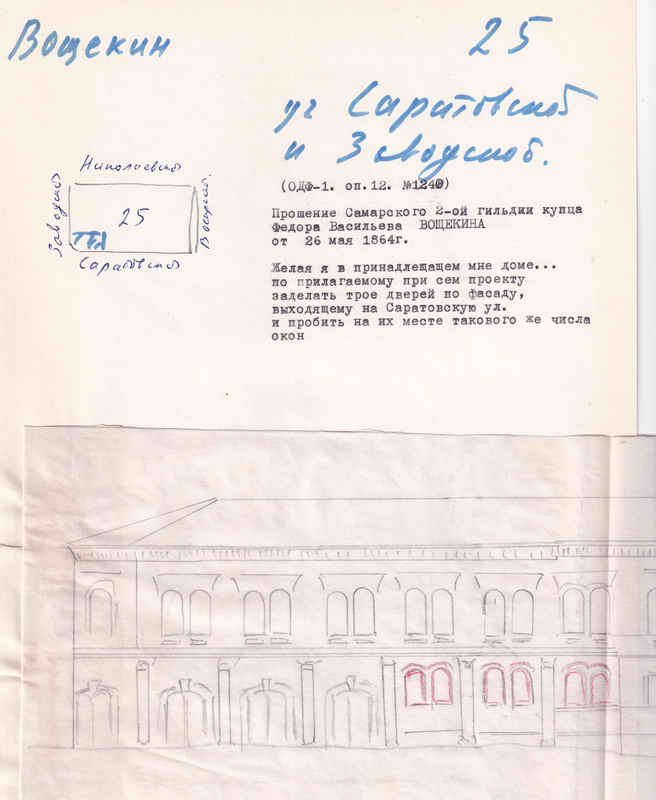 Вощекин
25
уг Саратовской
и Заводской.
(ОДФ-1. оп.12. №1240)
Николаевской
Заводской
25
Саратовской
Прошение Самарского 2-ой гильдии купца
Федора Васильева ВОЩЕКИНА
от 26 мая 1864г.
Желая я в принадлещащем мне доме...
по прилагаемому при сем проекту
заделать трое дверей по фасаду,
выходящему на Саратовскую ул.
и пробить на их месте такового же числа
окон